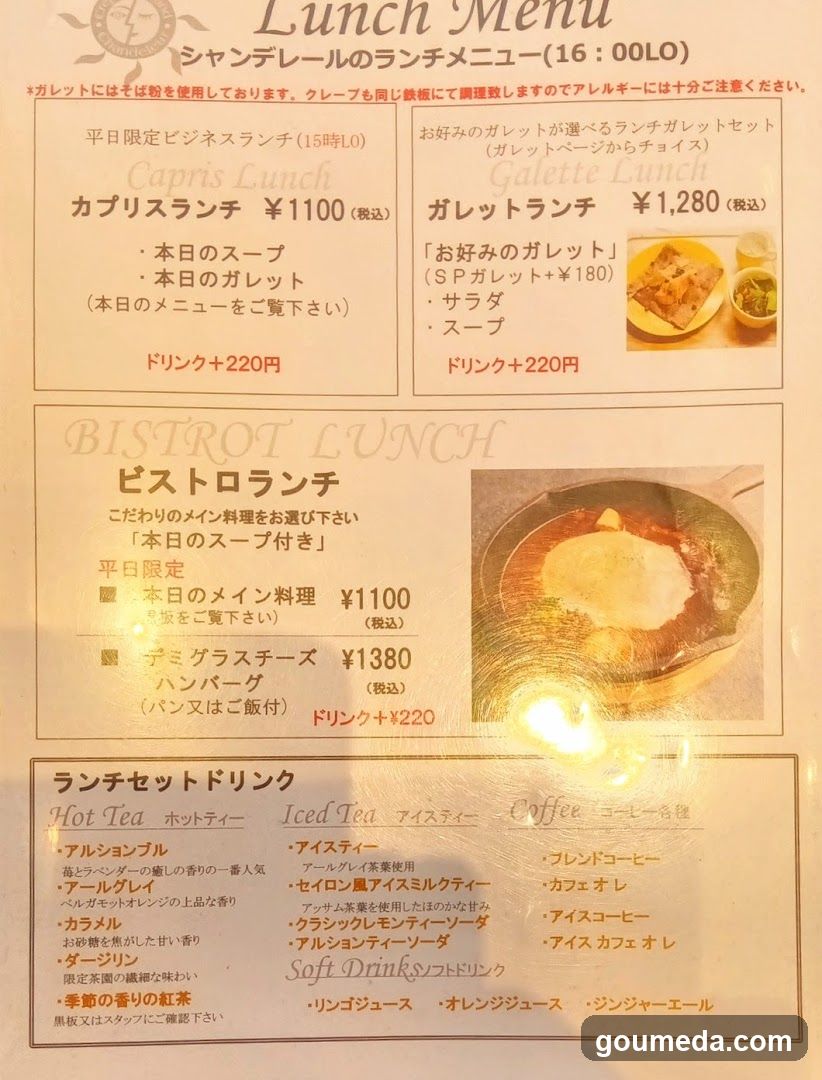 Lunch Menu
シャンデレールのランチメニュー(16：00LO)
*ガレットにはそば粉を使用しております。クレープも同じ鉄板にて調理致しますのでアレルギーには十分ご注意ください。
平日限定ビジネスランチ(15時LO)
Capris Lunch
カプリスランチ ￥1100(税込)
・本日のスープ
・本日のガレット
(本日のメニューをご覧下さい)
ドリンク＋220円
お好みのガレットが選べるランチガレットセット
(ガレットページからチョイス)
Galette Lunch
ガレットランチ ￥1,280(税込)
「お好みのガレット」
(ＳＰガレット+￥180)
・サラダ
・スープ
ドリンク＋220円
BISTROT LUNCH
ビストロランチ
こだわりのメイン料理をお選び下さい
「本日のスープ付き」
平日限定
本日のメイン料理 ¥1100
板をご覧下さい) (税込)
デミグラスチーズ ¥1380
ハンバーグ (税込)
(パン又はご飯付) ドリンク＋¥220
ランチセットドリンク
Hot Tea ホットティー
・アルションブル
苺とラベンダーの癒しの香りの一番人気
・アールグレイ
ベルガモットオレンジの上品な香り
・カラメル
お砂糖を焦がした甘い香り
・ダージリン
限定茶園の繊細な味わい
・季節の香りの紅茶
黒板又はスタッフにご確認下さい
Iced Tea アイスティー
・アイスティー
アールグレイ茶葉使用
・セイロン風アイスミルクティー
アッサム茶葉を使用したほのかな甘み
・クラシックレモンティーソーダ
・アルションティーソーダ
Coffee コーヒー各種
・ブレンドコーヒー
・カフェオレ
・アイスコーヒー
・アイスカフェオレ
Soft Drinks ソフトドリンク
・リンゴジュース ・オレンジジュース ・ジンジャーエール
goumeda.com